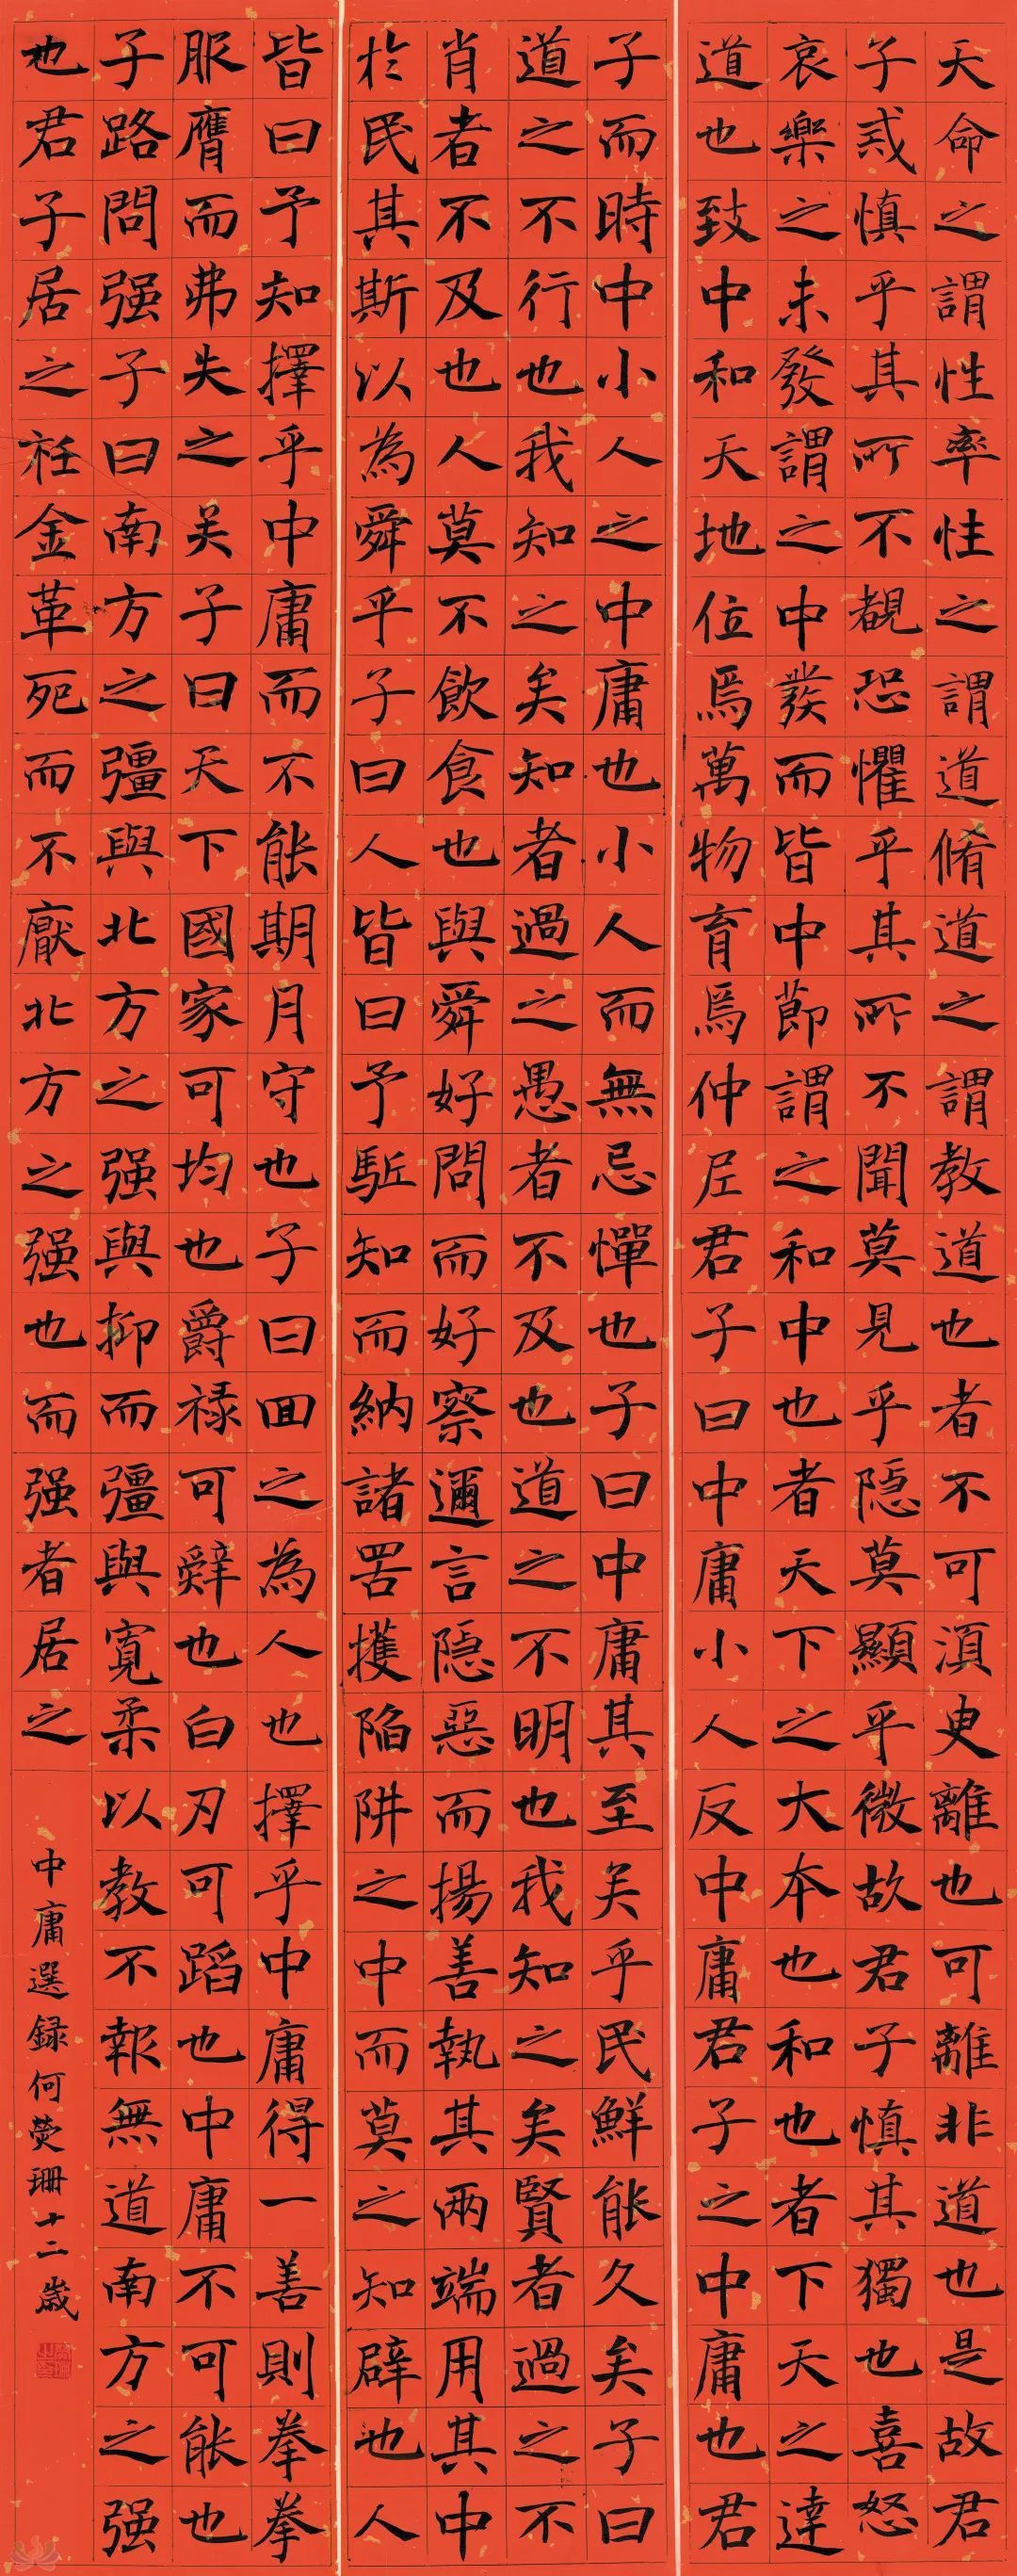 天命之謂性率性之謂道脩道之謂教道也者不可湏臾離也可離非道也是故君
子戒慎乎其所不覩恐懼乎其所不聞莫見乎隱莫顯乎微故君子慎其獨也喜怒
哀樂之未發謂之中發而皆中節謂之和中也者天下之大本也和也者下天之達
道也致中和天地位焉萬物育焉仲尼君子曰中庸小人反中庸君子之中庸也君
子而時中小人之中庸也小人而無忌憚也子曰中庸其至矣乎民鮮能久矣子曰
道之不行也我知之矣知者過之愚者不及也道之不明也我知之矣賢者過之不
肖者不及也人莫不飲食也與舜好問而好察邇言隱惡而揚善執其兩端用其中
於民其斯以為舜乎子曰人皆曰予駈知而納諸罟擭陷阱之中而莫之知辟也人
皆曰予知擇乎中庸而不能期月守也子曰回之為人也擇乎中庸得一善則拳拳
服膺而弗失之矣子曰天下國家可均也爵禄可辭也白刃可蹈也中庸不可能也
子路問强子曰南方之彊與北方之强與抑而彊與寬柔以教不報無道南方之强
也君子居之衽金革死而不厭北方之强也而强者居之
中庸選録何熒珊十二歲